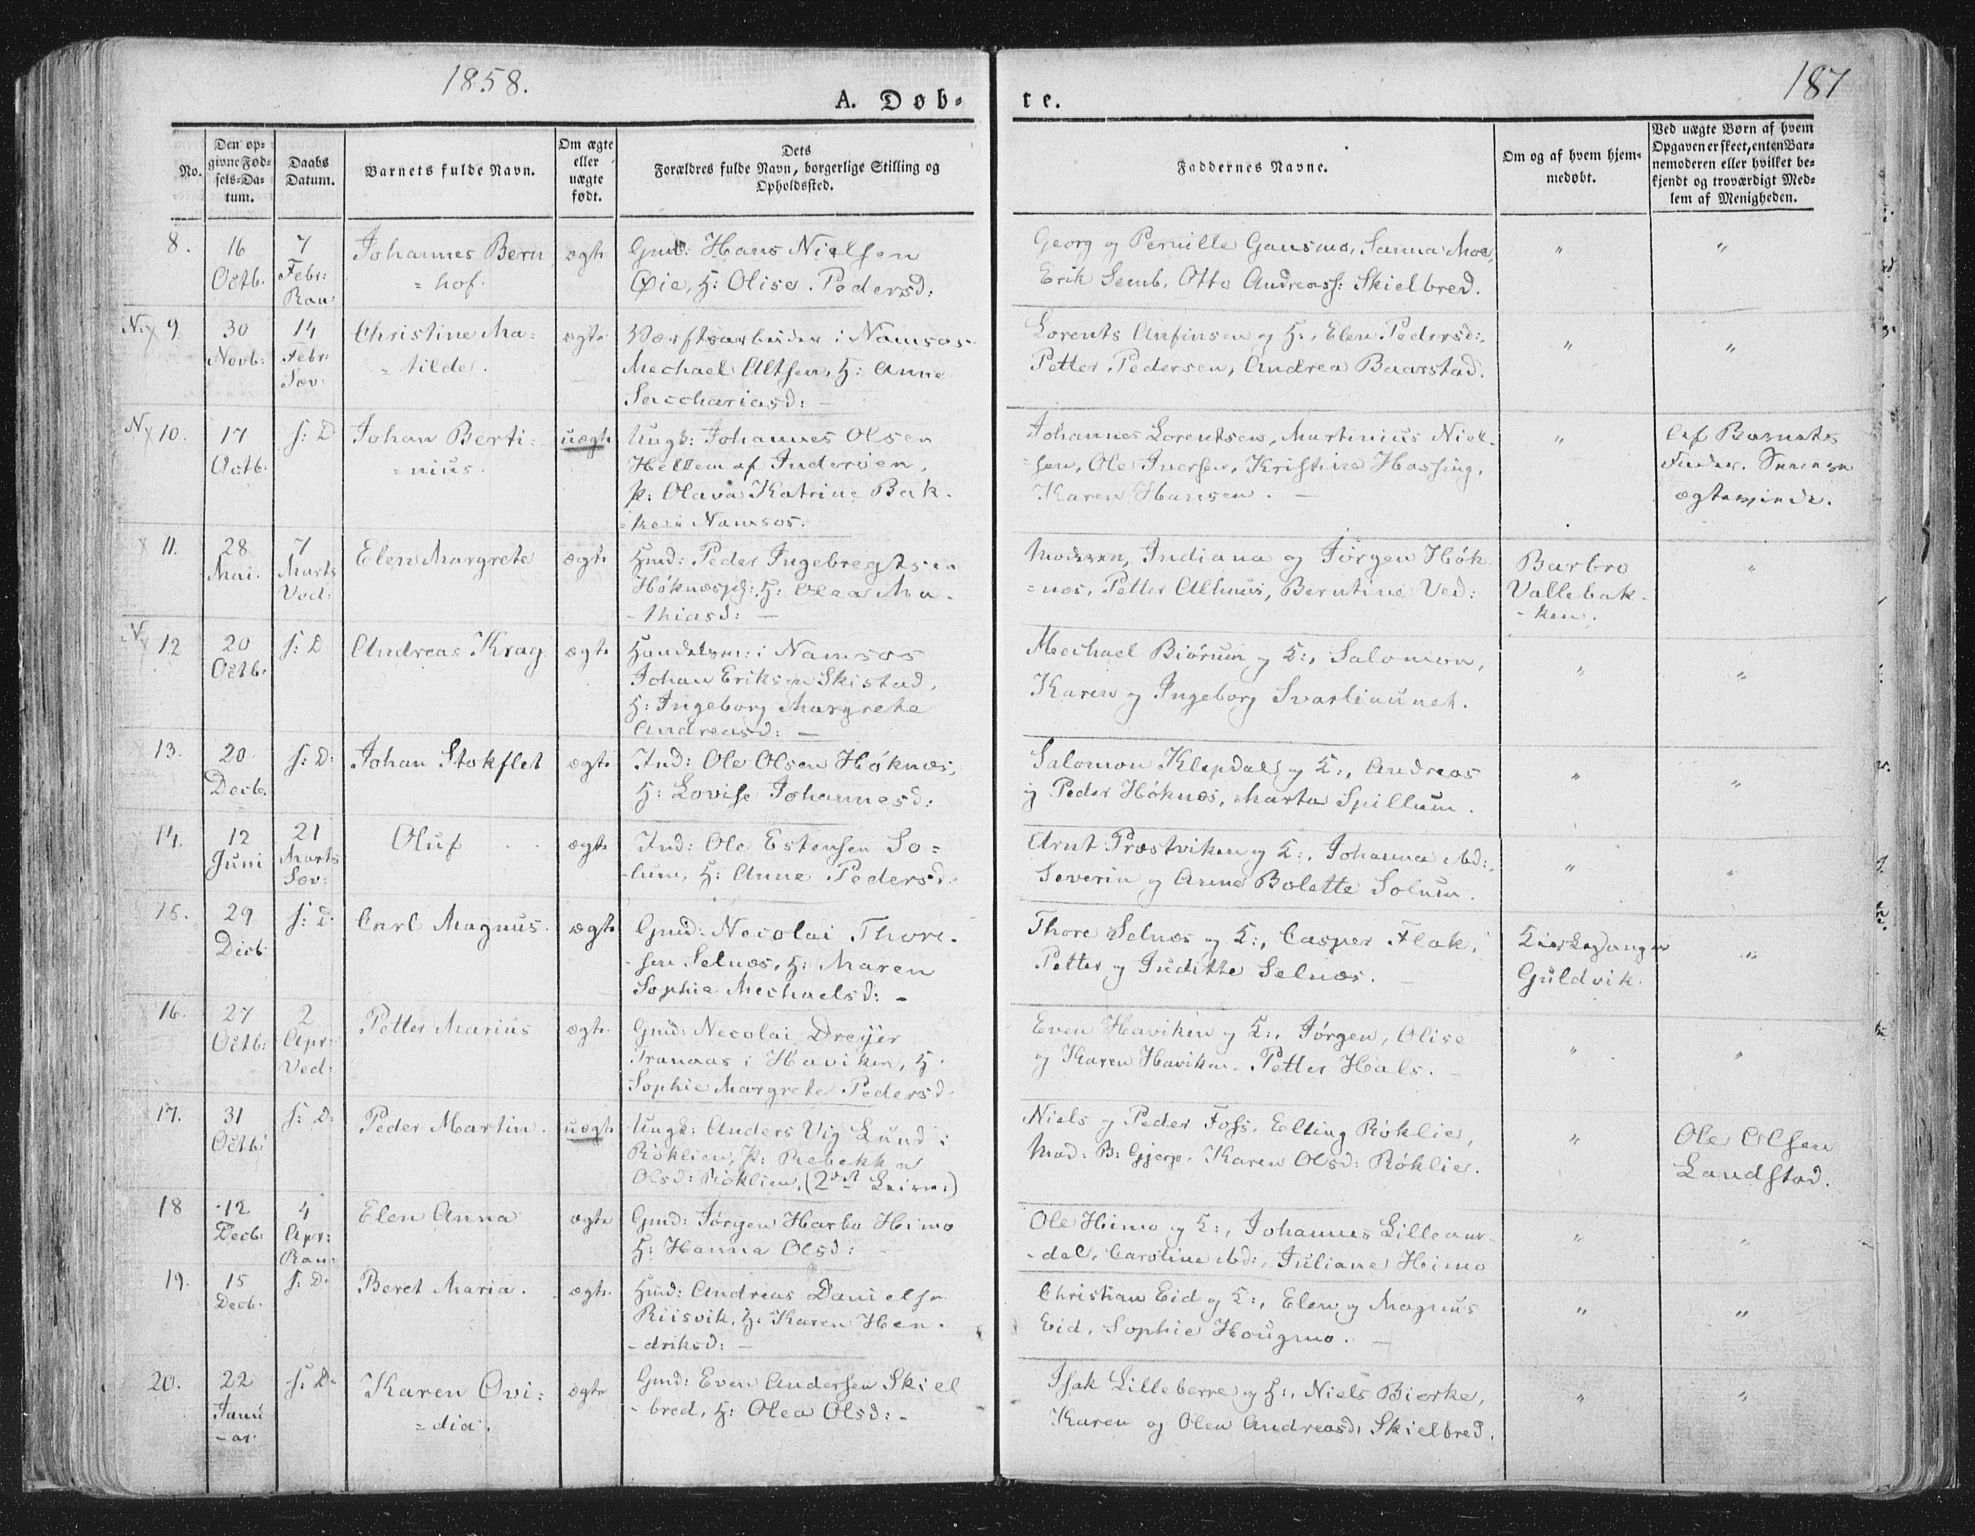 1858.
187
A. Døb-
te.
No.
Den op-
givne Fød-
sels-Da-
tum.
Daabs
Datum.
Barnets fulde Navn.
Om ægte
eller
uægte
født.
Dets
Forældres fulde Navn, borgerlige Stilling og
Opholdssted.
Faddernes Navne.
Om og af hvem hjem-
medøbt.
Ved uægte Børn af hvem
Opgaven er skeet, enten Bar-
nemoderen eller hvilket be-
kjendt og troværdigt Med-
lem af Menigheden.
8. 16 Octb. 7 Febr: Ran: Johannes Bern
=hof. ægte
Gmd: Hans Nielsen
Øie, H: Olise Pedersd:
Georg og Pernille Gansmo, Sanna Moe,
Erik Semb, Otto Andreass: Skielbred.
" "
N. 9. 30 Novb: 14 Febr: Sæv: Christine Ma-
=tilde. ægte
Værftsarbeider i Namsos
Mechael Altsen, H: Anne
Sacchariasd: -
Lorents Anfinsen og H:, Elen Pedersd:,
Petter Pedersen, Andrea Baarstad.
" "
N 10. 17 Octb. s: D Johan Berti-
=nius. uægte
Ungk: Johannes Olsen
Hellem af Inderøen,
p: Olava Katrine Bak-
=ke i Namsos.
Johannes Lorentsen, Martinius Niel-
sen, Ole Iversen, Kristine Hassing,
Karen Hansen. -
"
Af Barnets
Fader.
11. 28 Mai. 7 Marts Ved: Elen Margrete ægte
Hmd: Peder Ingebregtsen
Høknæs H: Olea Ma-
-thiasd: -
Moderen, Indiana og Jørgen Høk
=næs, Petter Berntine Ved:
Barbro
Vallebak-
-ken.
"
N 12 20 Octb. s: D Andreas Krag ægte
Handelsm: i Namsos
Johan Eriksen Skistad,
H: Ingeborg Margrete
Andreasd: -
Mechael Biörum og K:, Salomon,
Karen og Ingeborg Svarliaunet.
" "
13. 20 Decb. s: D: Johan Stokflet ægte
Ind: Ole Olsen Høknæs,
H: Lovise Johannesd:
Salomon Klepdal og K:, Andreas
og Peder Høknæs, Marta Spillum.
" "
14. 12 Juni 21 Marts Sæv: Oluf ægte
Ind: Ole Estensen So-
-lum, H: Anne Pedersd:
Arnt Præstviken og K:, Johanna Ad:,
Severin og Anne Bolette Solum.
" "
15. 29 Decb s: D. Carl Magnus. ægte
Gmd: Necolai Thore-
-sen Selnæs, H: Maren
Sophie Mechaelsd: -
Thore Selnæs og K:, Casper Flak,
Petter og Juditte Selnæs. -
Kirkesanger
Guldvik.
"
16. 27 Octb: 2 Apr: Ved: Petter Marius ægte
Gmd: Necolai Dreyer
Tranaas i Haviken, H.
Sophie Margrete Pedersd.
Even Haviken og K:, Jørgen, Olise
og Karen Haviken. Petter Hals. -
" "
17. 31 Octb: s: D: Peder Martin. uægte
Ungk: Anders Vig Lund i
Röklien, P: Rebekka
Olsd: Röklien, (2det Leierm:)
Niels og Peder Foss, Elling Röklie,
Mad: B: Gjerp. Karen Olsd: Röklie.
"
Ole Olsen
Landstad.
18 12 Decb: 4 Apr: Ran: Elen Anna ægte
Gmd: Jørgen Harbo Himo
H: Hanna Olsd: -
Ole Himo og K:, Johannes Lilleaur-
-dal, Caroline Ad:, Juliane Himo
" "
19. 15 Decb. s: D. Beret Maria. ægte
Hmd: Andreas Danielsen
Riisvik, H: Karen Hen-
-driksd: -
Christian Eid og K:, Elen og Magnus
Eid, Sophie Hougmo. -
" "
20. 22 Janu
-ar. s: D. Karen Ovi-
=dia. ægte
Gmd: Even Andersen Skiel
-bred, H: Olea Olsd: -
Isak Lilleberre og H:, Niels Bierke,
Karen og Olea Andreasd: Skielbred.
" "